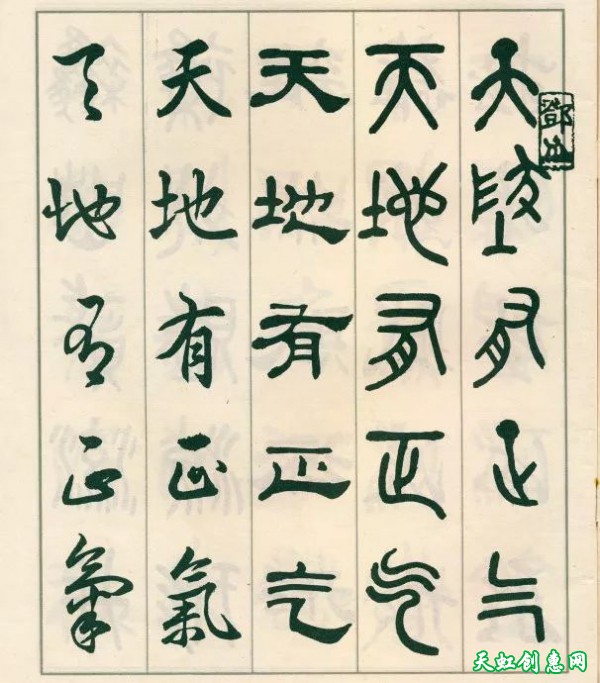 天地有正氣
天地有正气
天地有正气
天地有正氣
天地有正氣
天虹创惠网